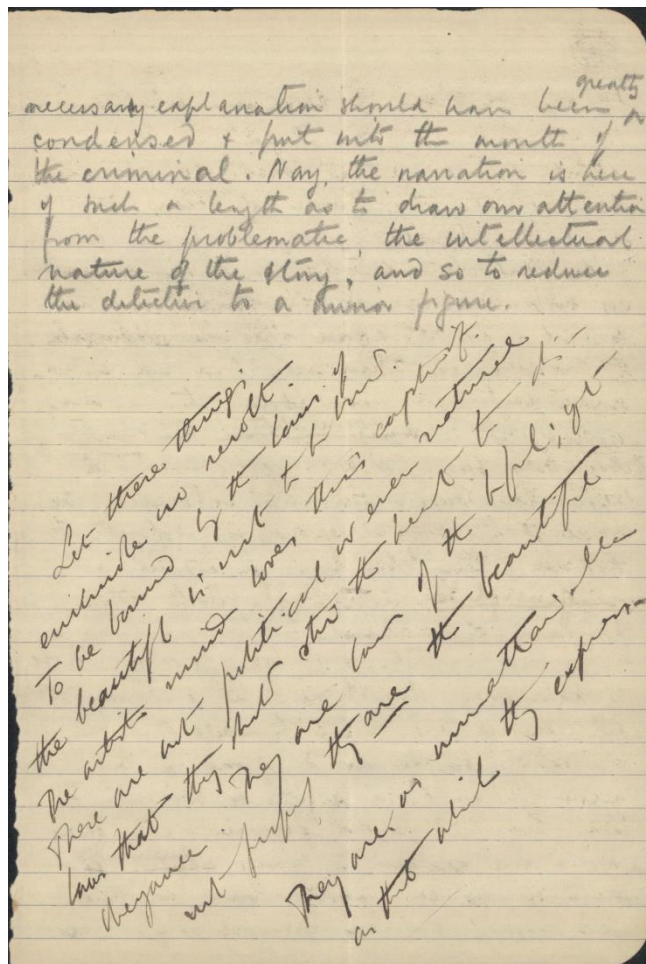 greatly
necessary explanation should have been or
condensed & put into the mouth of
the criminal. Nay, the narration is here
of such a length as to draw our attention
from the problematic, the intellectual
nature of the story, and so to reduce
the detective to a minor figure.
Let these things
enkindle no revolt.
To be bound by the laws of
the beautiful is not to be bound.
The artist's mind loves this captivity.
These are not political or even natural
laws that they should stir the heart to dis-
obeyance. They are laws of the btful; yet
not properly they are the beautiful
They are as immutable
as that which they express.